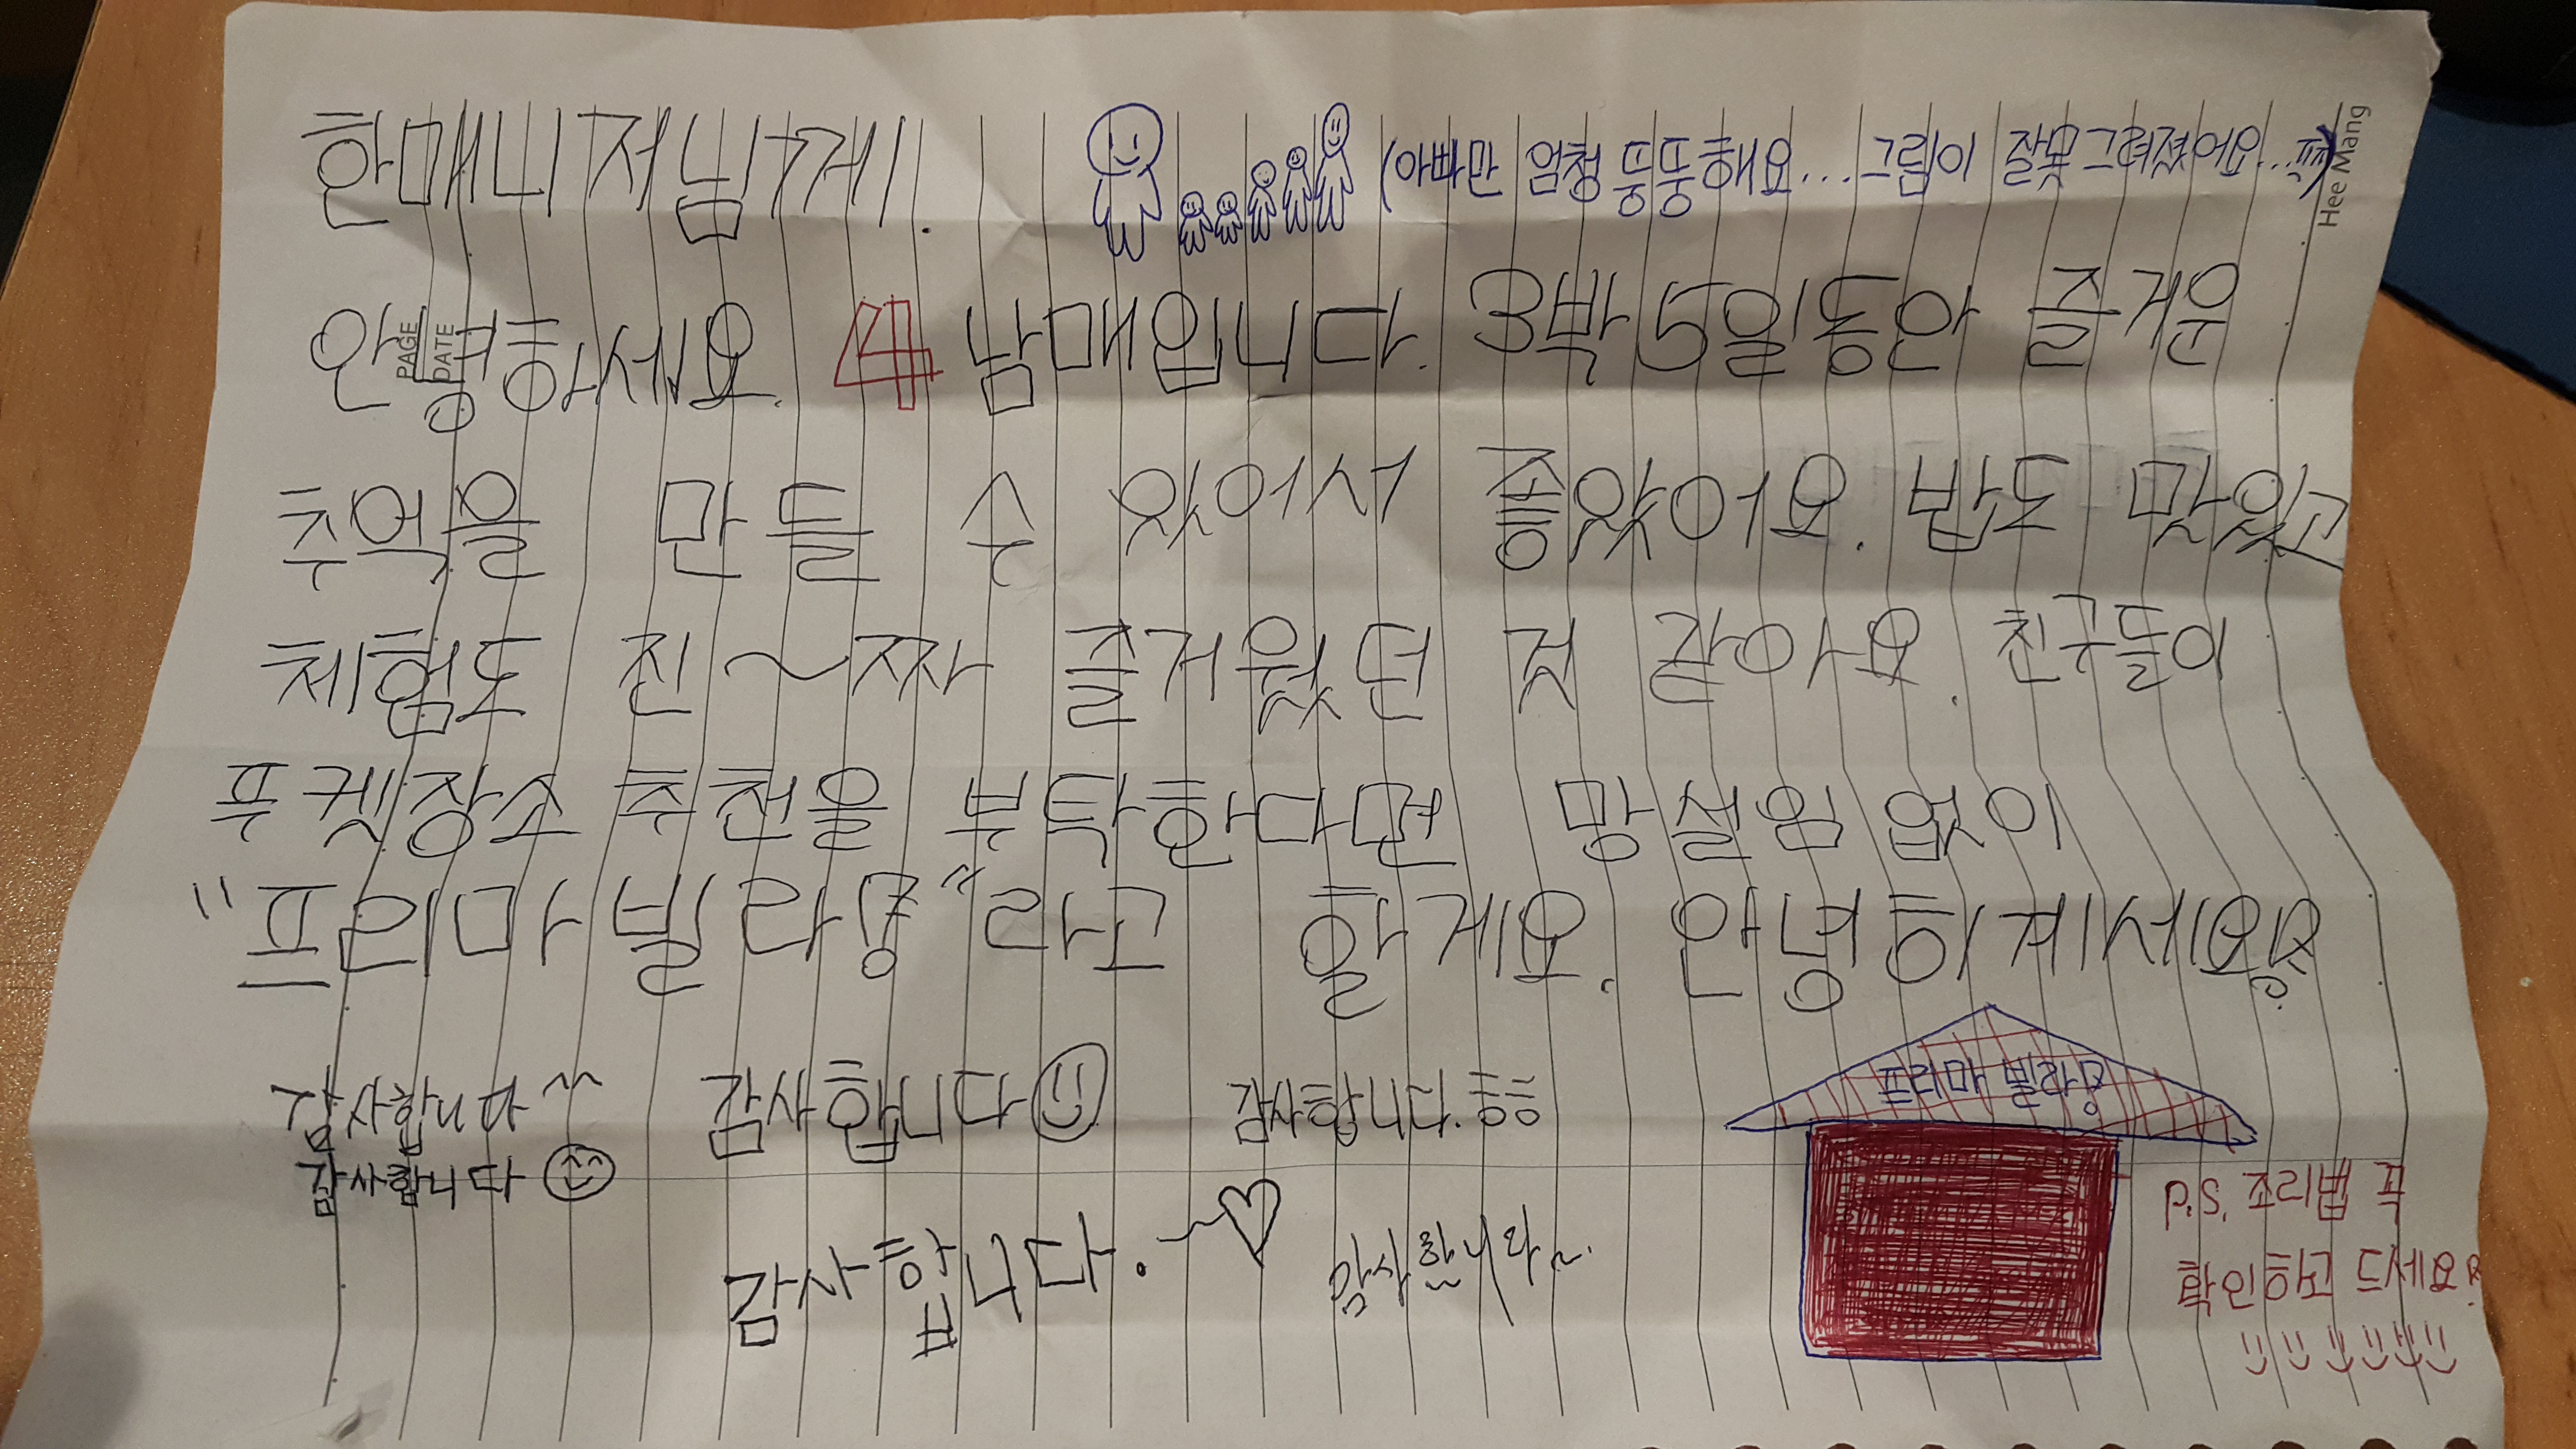 한매니저님께.
(아빠만 엄청 뚱뚱해요... 그림이 잘못그려졌어요...
Hee Mang
PAGE
DATE
안녕하세요. 4남매입니다. 3박5일동안 즐거운
추억을 만들 수 있어서 좋았어요. 밥도 맛있고
체험도 진~짜 즐거웠던 것 같아요. 친구들이
푸켓장소 추천을 부탁한다면 망설임 없이
"프리마빌라몽"라고 할게요. 안녕히계세요
감사합니다^^
감사합니다
감사합니다
감사합니다. 흥흥
감사합니다.~♡
감사합니다~.
프리마 빌라몽
확인해 드세요